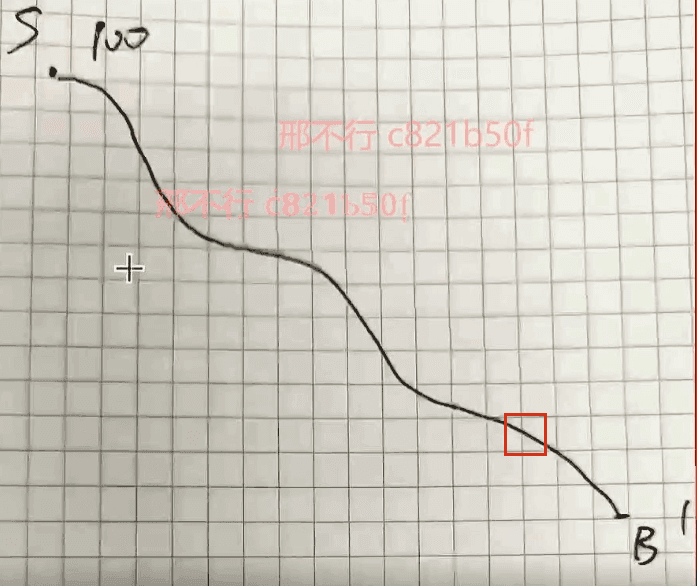 S 100
邢不行 c821b50f
邢不行 c821b50f
B 1